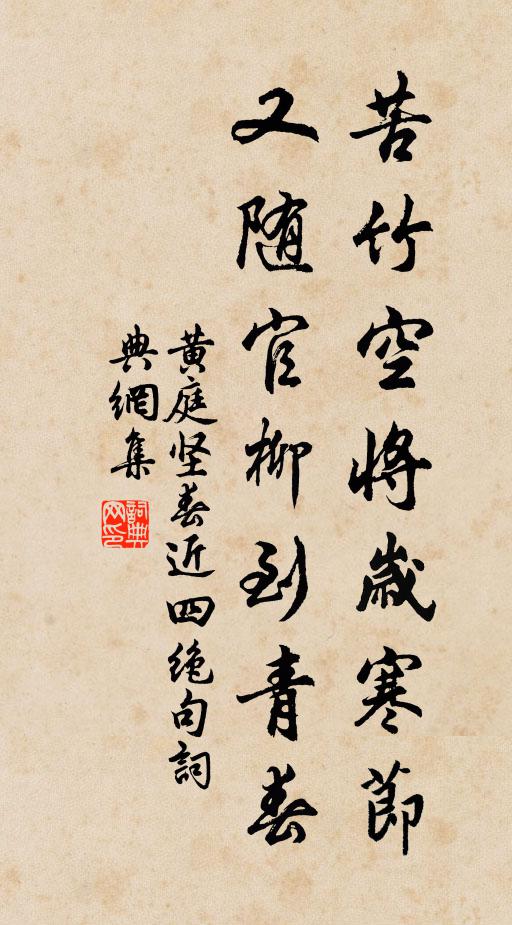 苦竹空将歲寒節
又随官柳到青春
黄庭坚春近四绝句詞
典網集
詞典網印